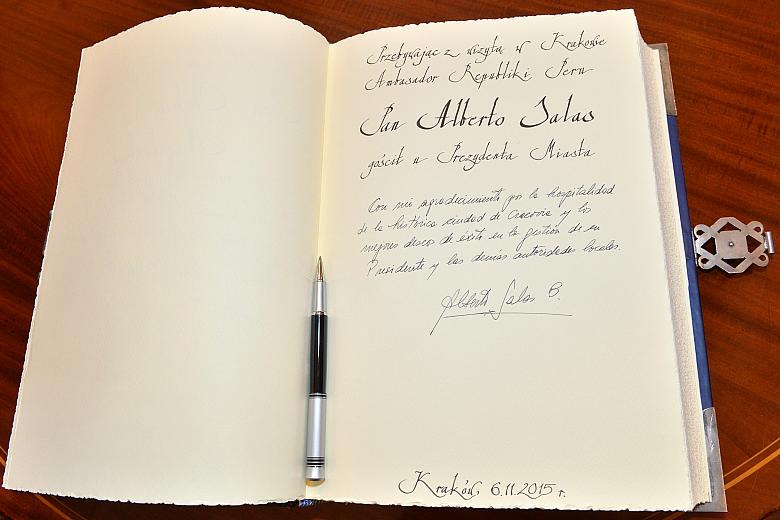 Przebywając z wizytą w Krakowie
Ambasador Republiki Peru
Pan Alberto Salas
gościł u Prezydenta Miasta
Con mi agradecimiento por la hospitalidad
de la histórica ciudad de Cracovia y los
mejores deseos de éxito en la gestión de su
Presidente y las demás autoridades locales.
Alberto Salas B.
Kraków, 6.11.2015 r.